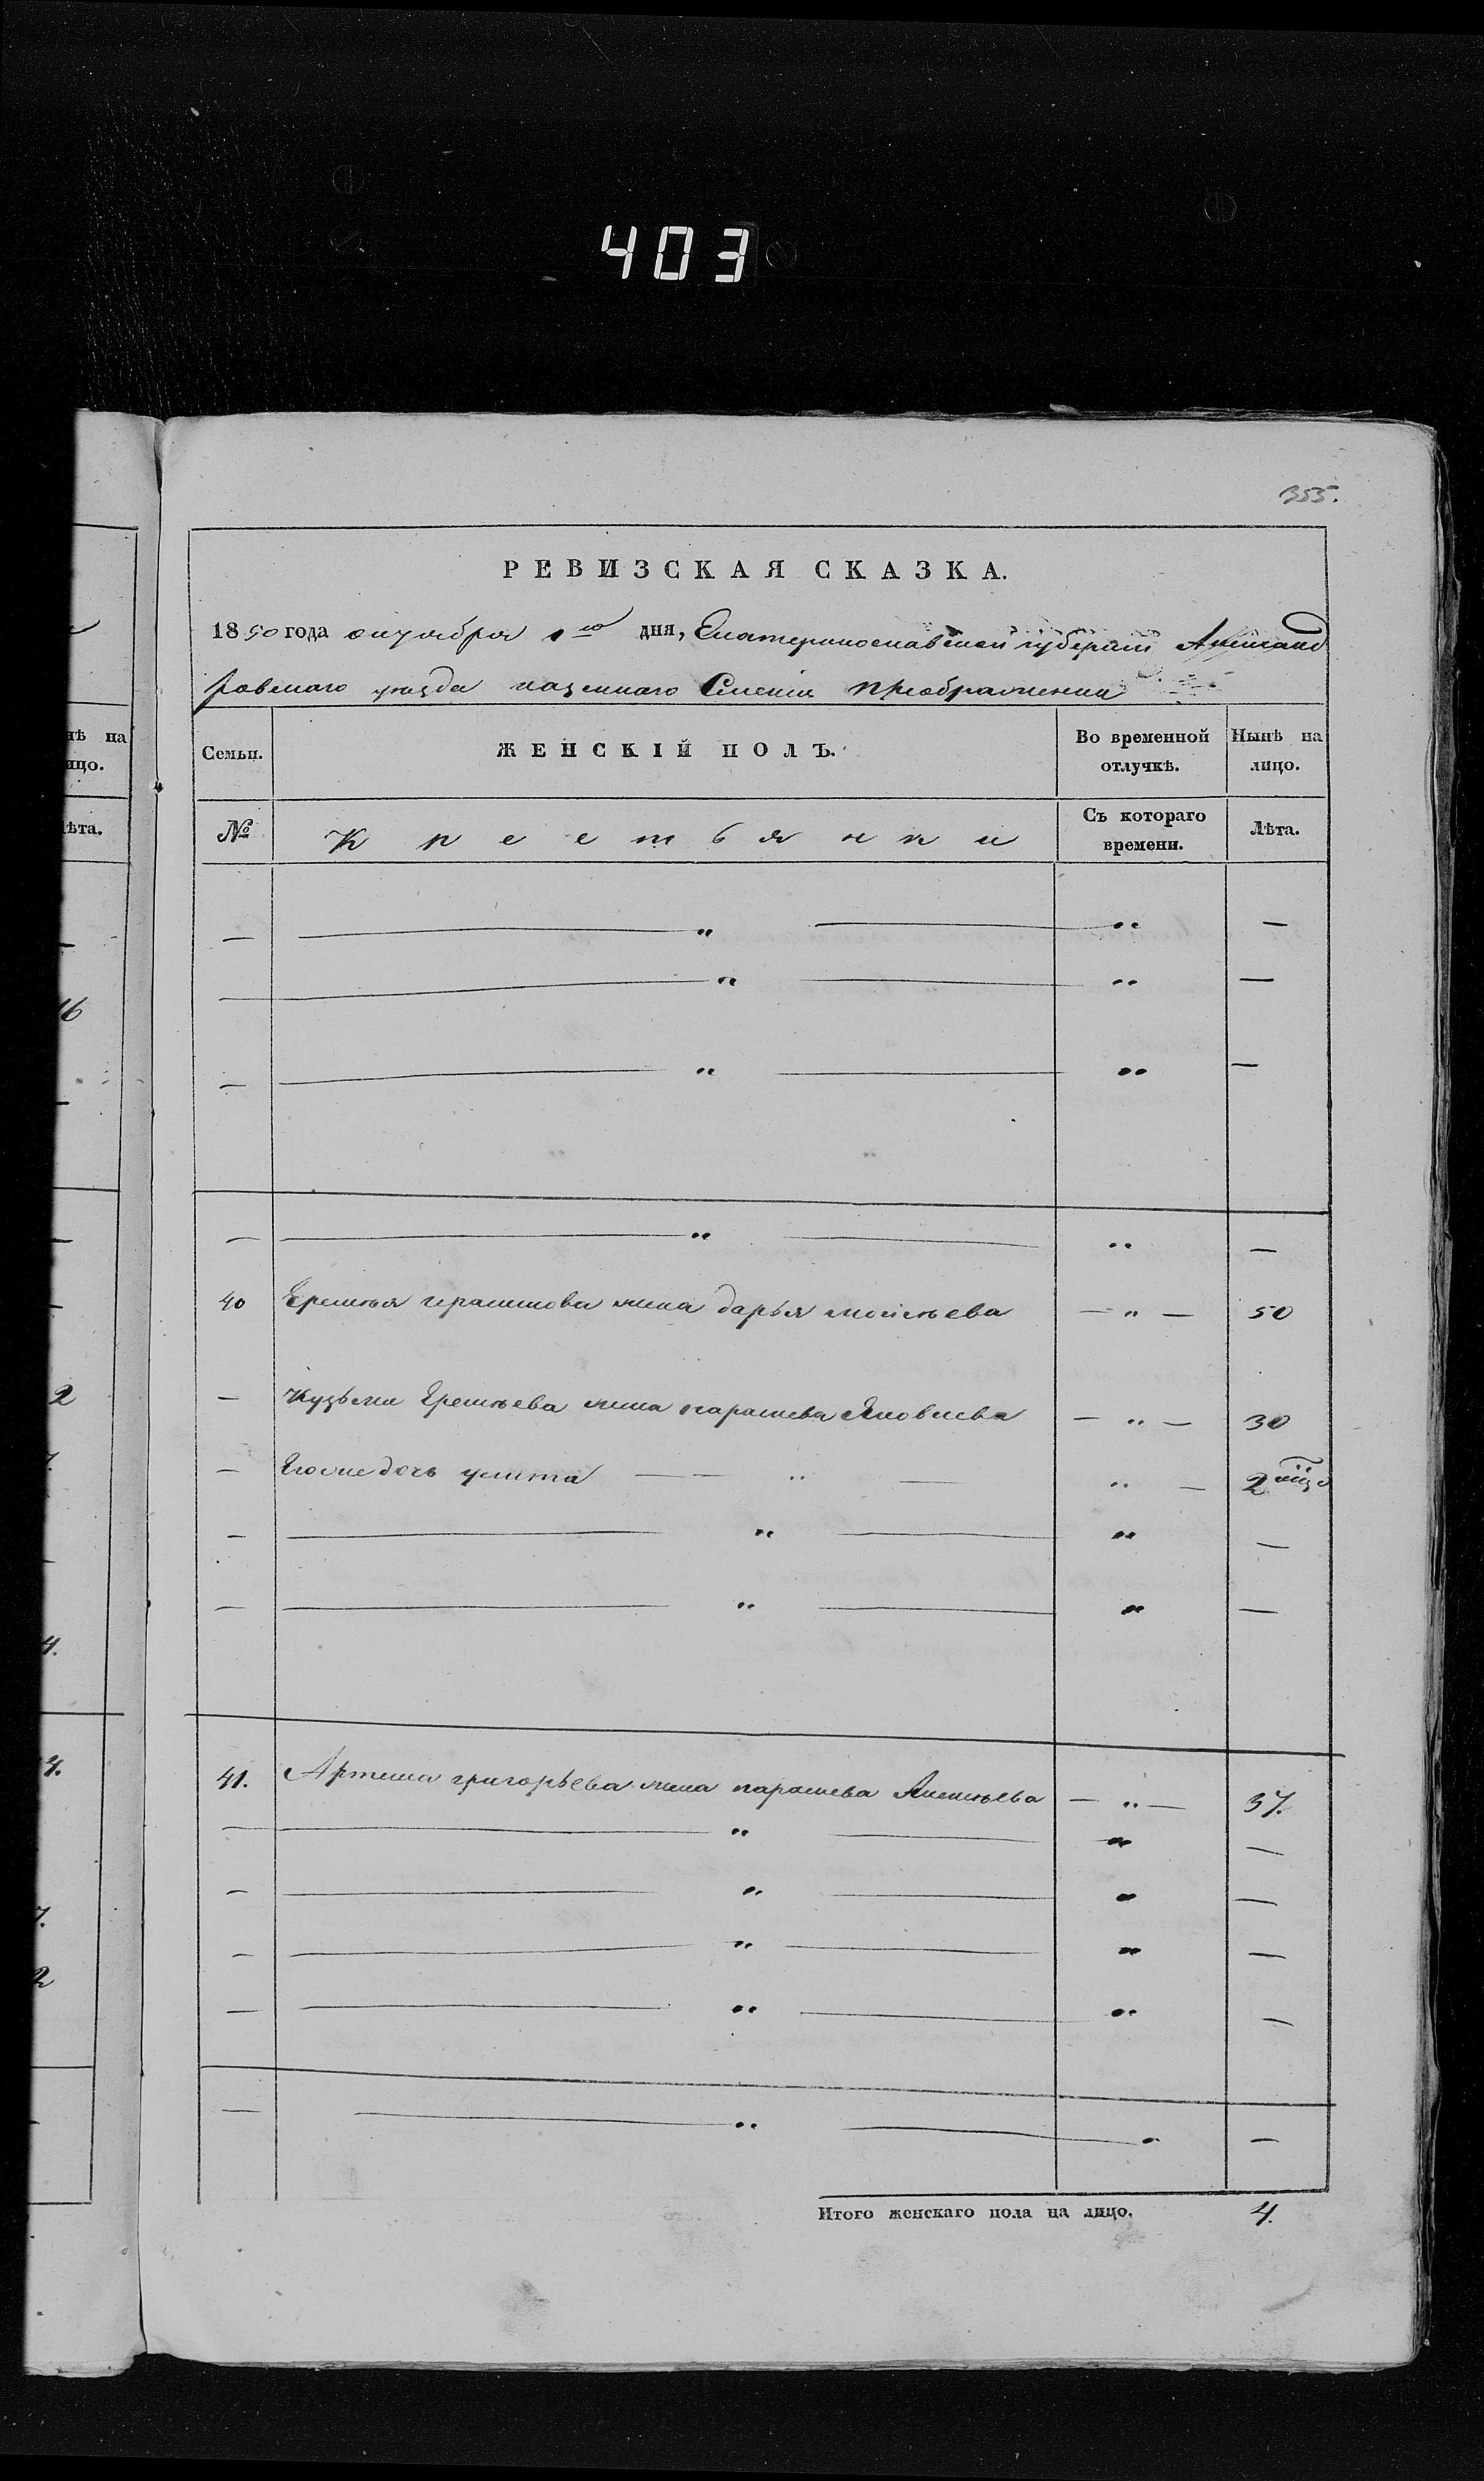 403
355.
РЕВИЗСКАЯ СКАЗКА.
1850 года октября 1го дня, Екатеринославской губернии Александ
ровскаго уезда казеннаго Селенія преображенки
Семьи.
ЖЕНСКІЙ ПОЛЪ.
Во временной отлучкѣ.
Нынѣ на лицо.
№
Крестьянки
Съ котораго времени.
Лѣта.
40 Еремѣя герасимова жена дарья моисѣева — „ — 50
— Кузьмы Еремѣева жена парасковя Яковлева — „ — 30
— Егоже дочь улита — — „ — „ — 2
41. Артема григорьева жена парасковя Алексѣева — „ — 37.
Итого женскаго пола на лицо. 4.
нѣ на
ицо.
ѣта.
16
2
7.
4.
4.
7.
2